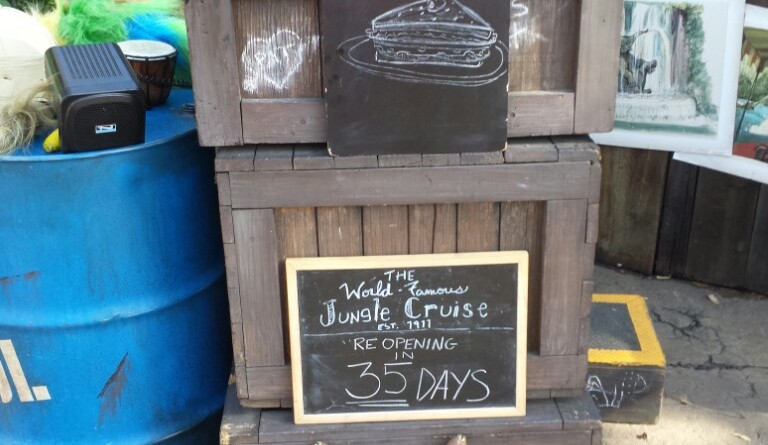 THE
World-Famous
Jungle Cruise
EST. 1911
RE OPENING
IN
35 DAYS